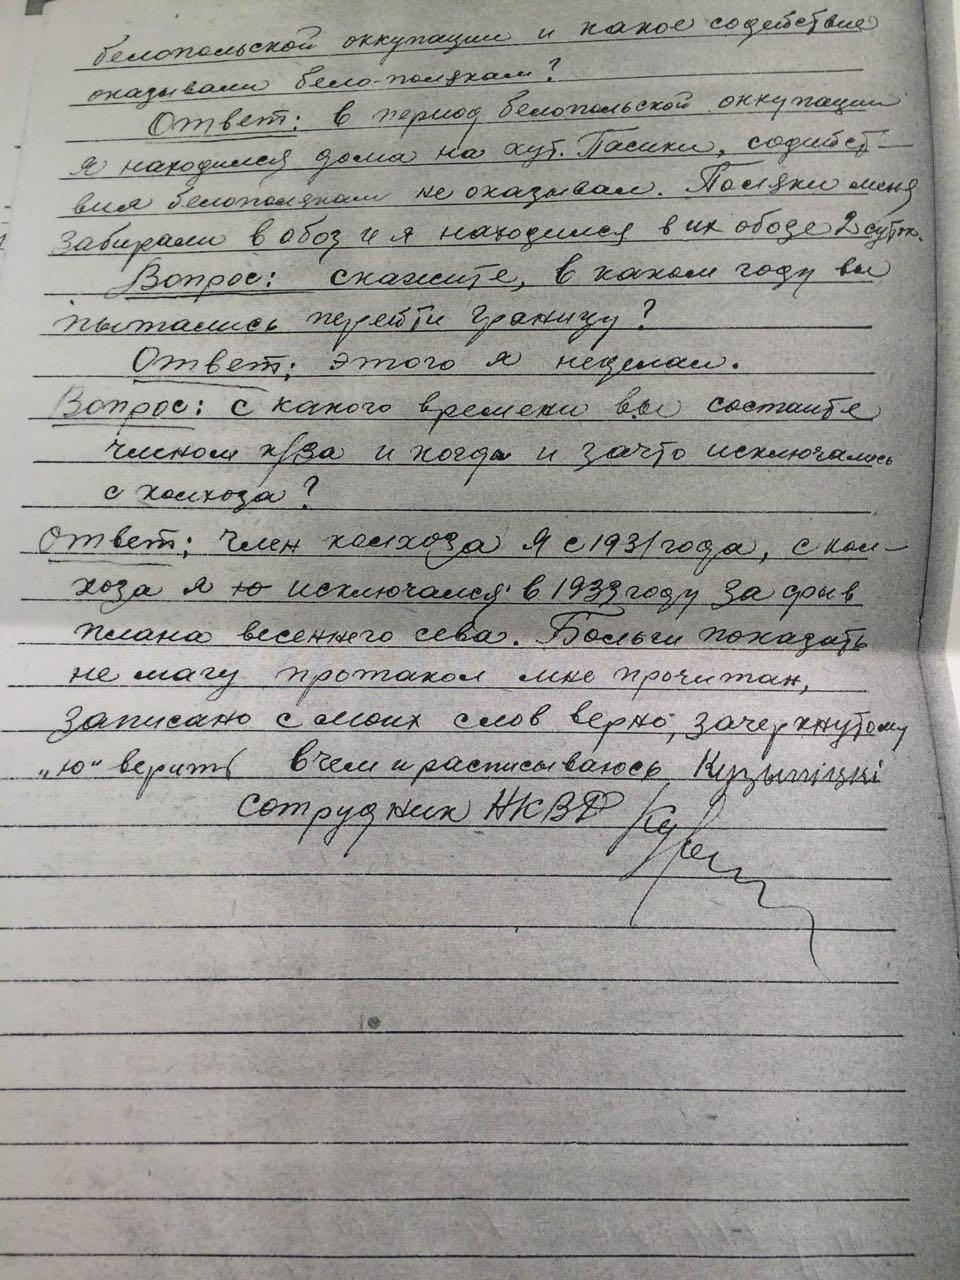 белопольской оккупации и какое содействие
оказывали бело-полякам?
Ответ: в период белопольской оккупации
я находился дома на хут. Пасики, содийст-
вия белополякам не оказывал. Поляки меня
забирали в обоз и я находился в их обозе 2 суток.
Вопрос: скажите, в каком году вы
пытались перейти границу?
Ответ: этого я неделал.
Вопрос: с какого времени вы состоите
членом к/за и когда и зачто исключались
с колхоза?
Ответ: член колхоза я с 1931 года, с кол-
хоза я ю исключался в 1933 году за срыв
плана весеннего сева. Больги показать
не магу протакол мне прочитан,
записано с моих слов верно, зачеркнутому
„ю" верить вчем и расписываюсь
сотрудник НКВД